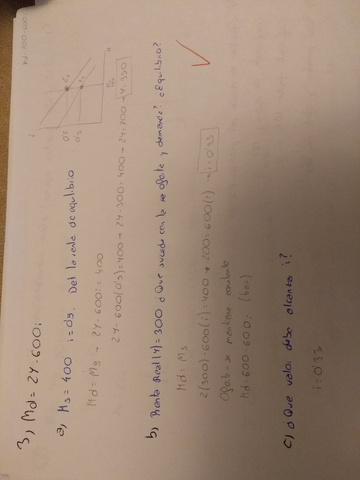 3) Md = 2Y - 600i
a) Ms = 400 i = 0'5. Det la renta de equilibrio
Md = Ms → 2Y - 600i = 400
2Y - 600(0'5) = 400 → 2Y - 300 = 400 → 2Y = 700 → Y = 350
b) Renta Real (Y) = 300 ¿Que sucede con la oferta y demanda? ¿Equilibrio?
Md = Ms
2(300) - 600(i) = 400 → 200 = 600(i) → i = 0'33
Oferta se mantiene constante
Md = 600 - 600i
c) ¿Que valor debe alcanzar i?
i = 0'33